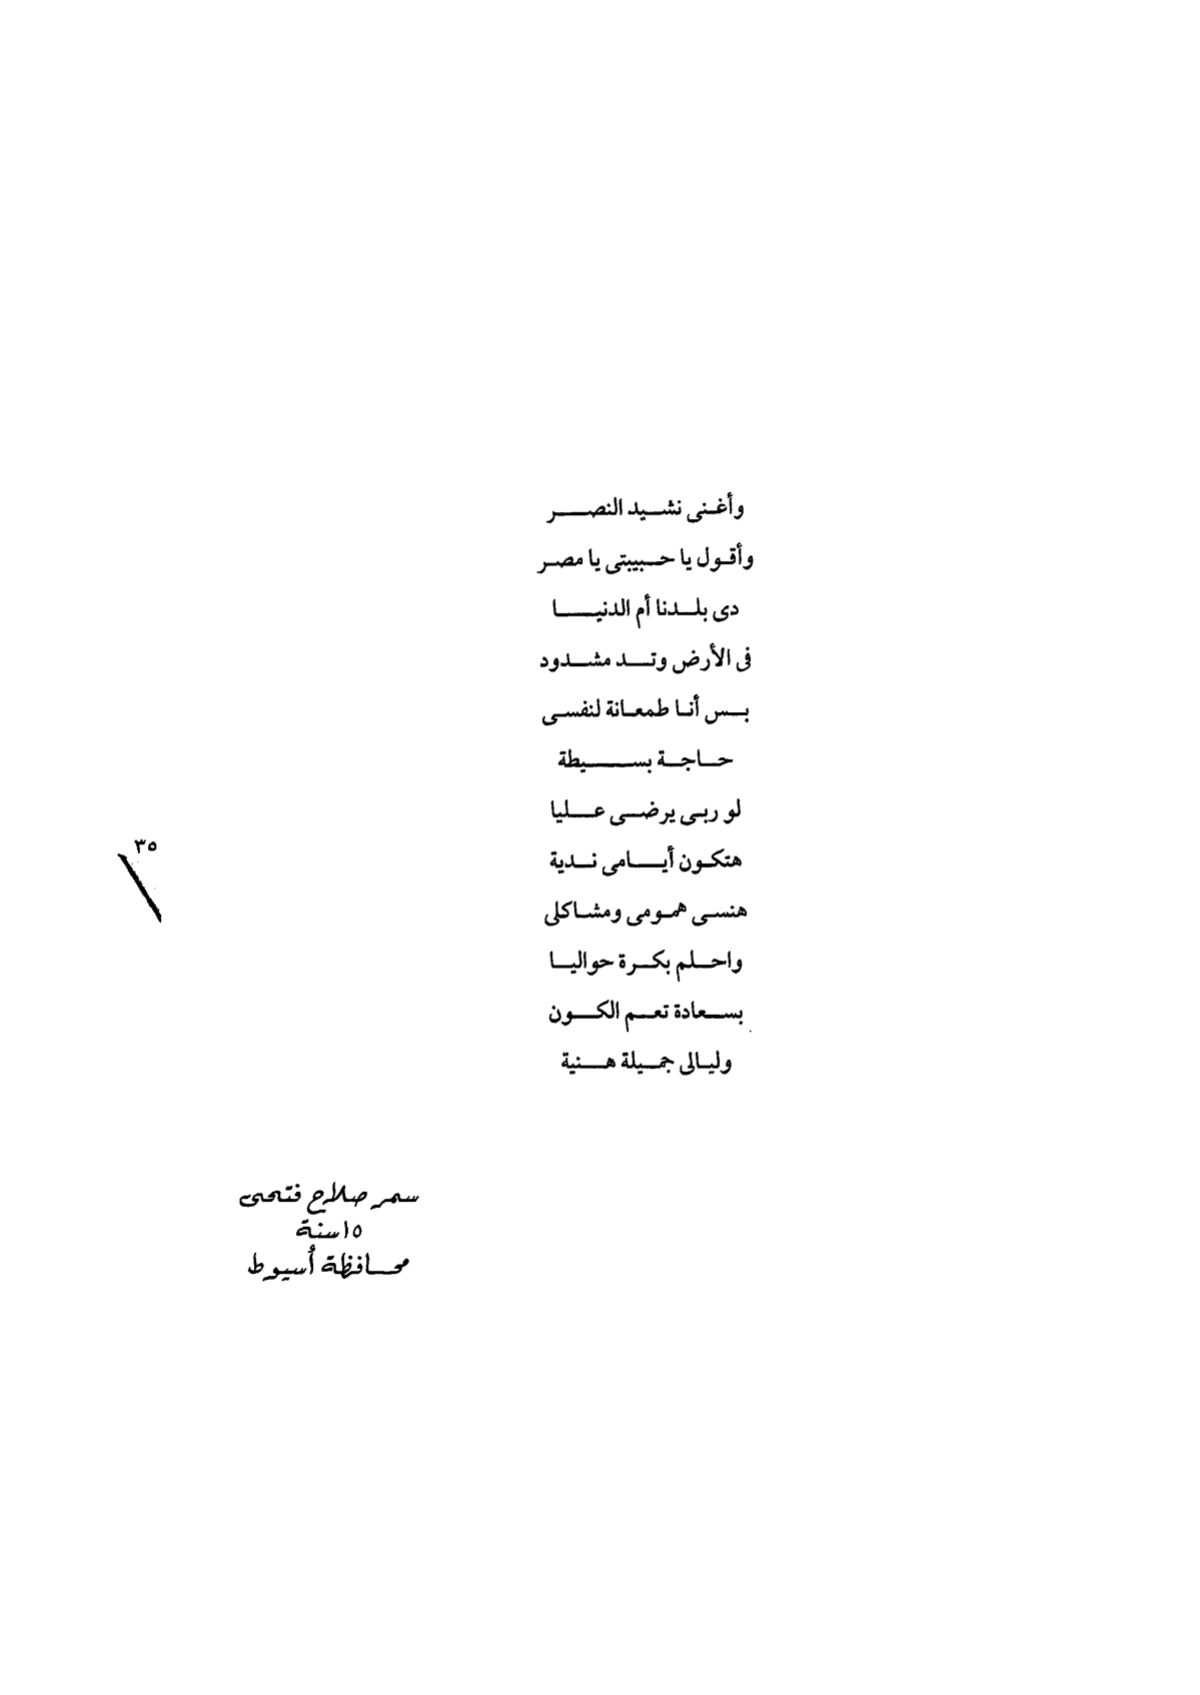 وأغنى نشيد النصر
وأقول يا حبيبتى يا مصر
دى بلدنا أم الدنيا
فى الأرض وتد مشدود
بس أنا طمعانة لنفسى
حاجة بسيطة
لو ربى يرضى عليا
هتكون أيامى ندية
هنسى همومى ومشاكلى
واحلم بكرة حواليا
بسعادة تعم الكون
وليالى جميلة هنية
٣٥
سمر صلاح فتحى
١٥ سنة
محافظة أسيوط